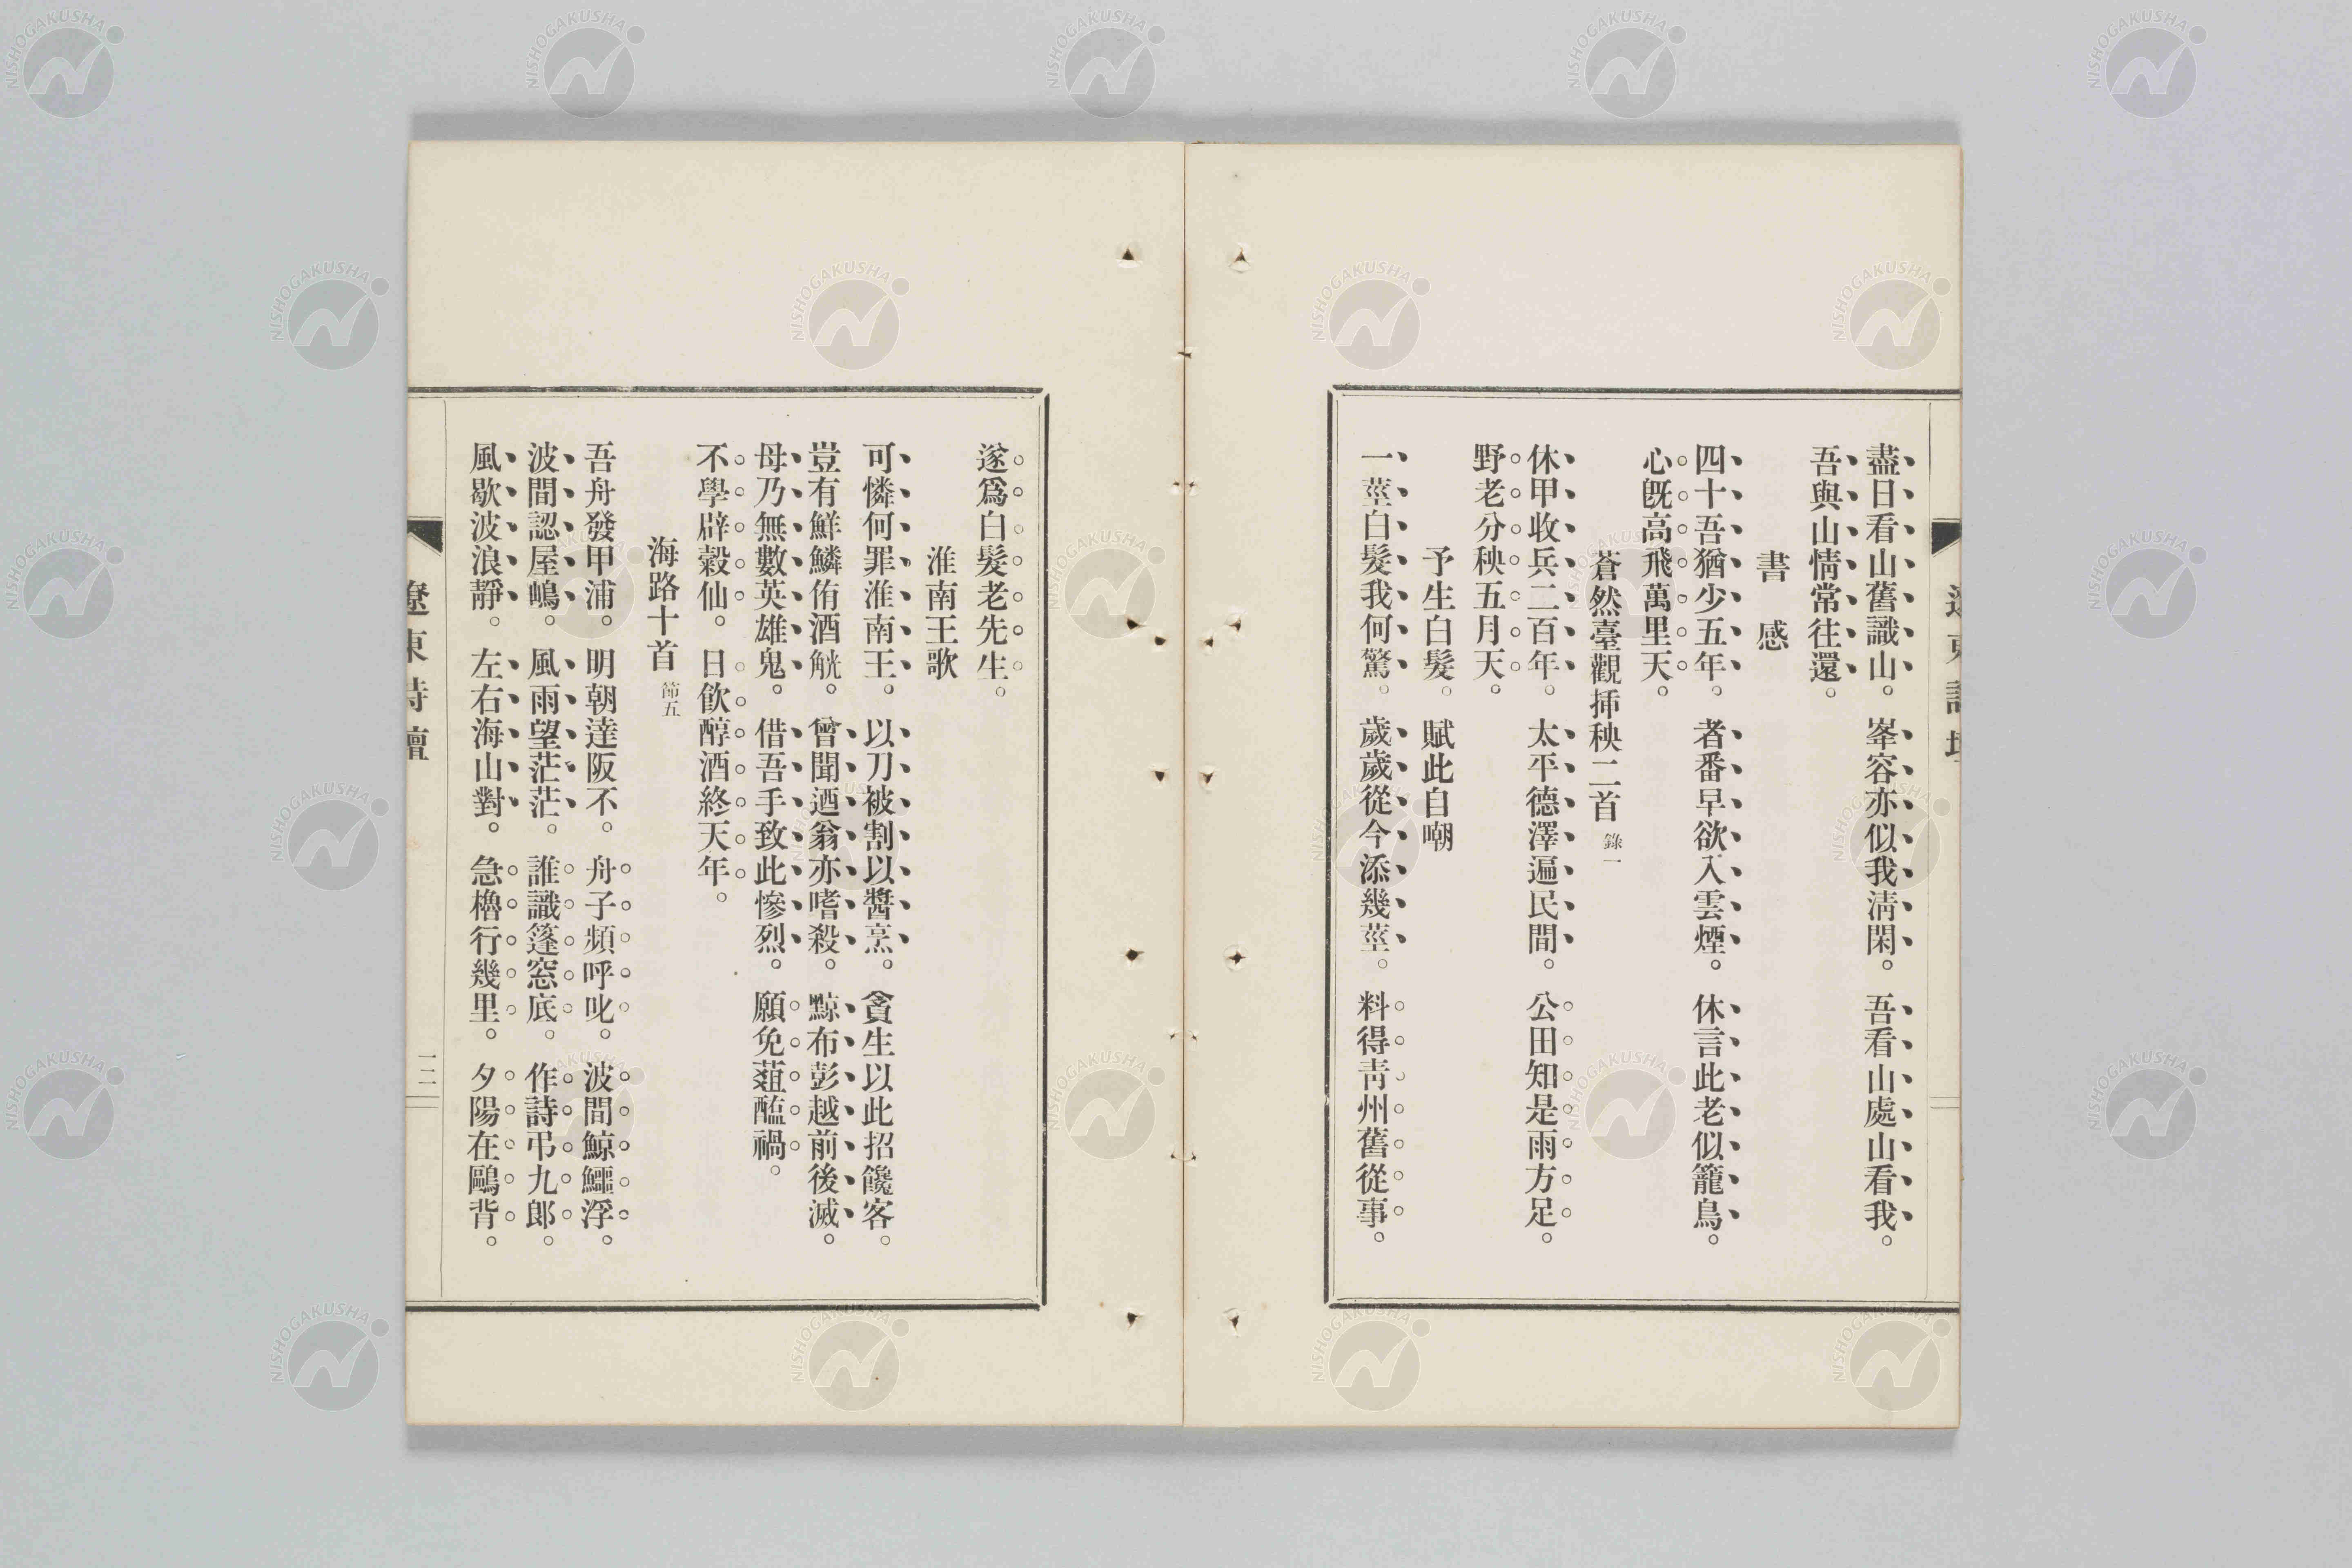 盡日看山舊識山。峯容亦似我淸閑。吾看山處山看我。
吾與山情常往還。
書感
四十吾猶少五年。者番早欲入雲煙。休言此老似籠鳥。
心旣高飛萬里天。
蒼然臺觀揷秧二首 錄一
休甲收兵二百年。太平德澤遍民間。公田知是雨方足。
野老分秧五月天。
予生白髮。賦此自嘲
一莖白髮我何驚。歲歲從今添幾莖。料得靑州舊從事。
遂爲白髮老先生。
淮南王歌
可憐何罪淮南王。以刀被割以醬烹。貪生以此招饞客。
豈有鮮鱗侑酒觥。曾聞迺翁亦嗜殺。黥布彭越前後滅。
母乃無數英雄鬼。借吾手致此慘烈。願免葅醢禍。
不學辟穀仙。日飮醇酒終天年。
海路十首 節五
吾舟發甲浦。明朝達阪不。舟子頻呼叱。波間鯨鱷浮。
波間認屋嶋。風雨望茫茫。誰識篷窓底。作詩弔九郞。
風歇波浪靜。左右海山對。急櫓行幾里。夕陽在鷗背。
遼東詩壇
一二
NISHOGAKUSHA